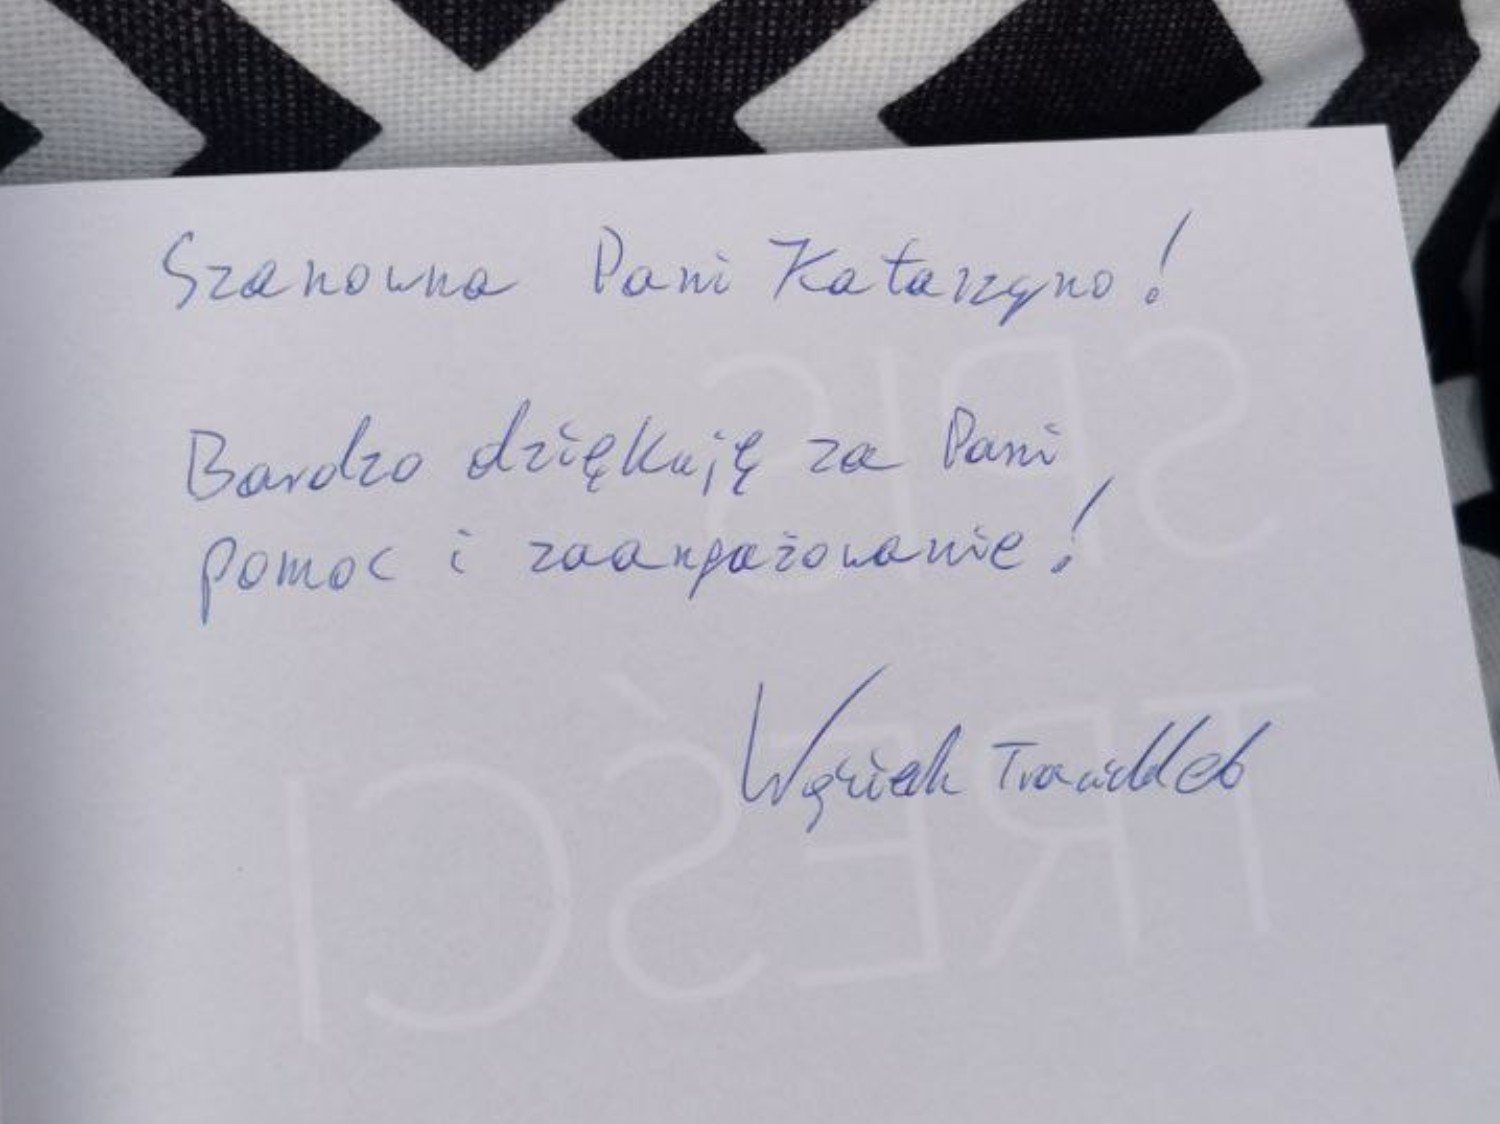 Szanowna Pani Katarzyno!
Bardzo dziękuję za Pani
pomoc i zaangażowanie!
SPIS
TREŚCI